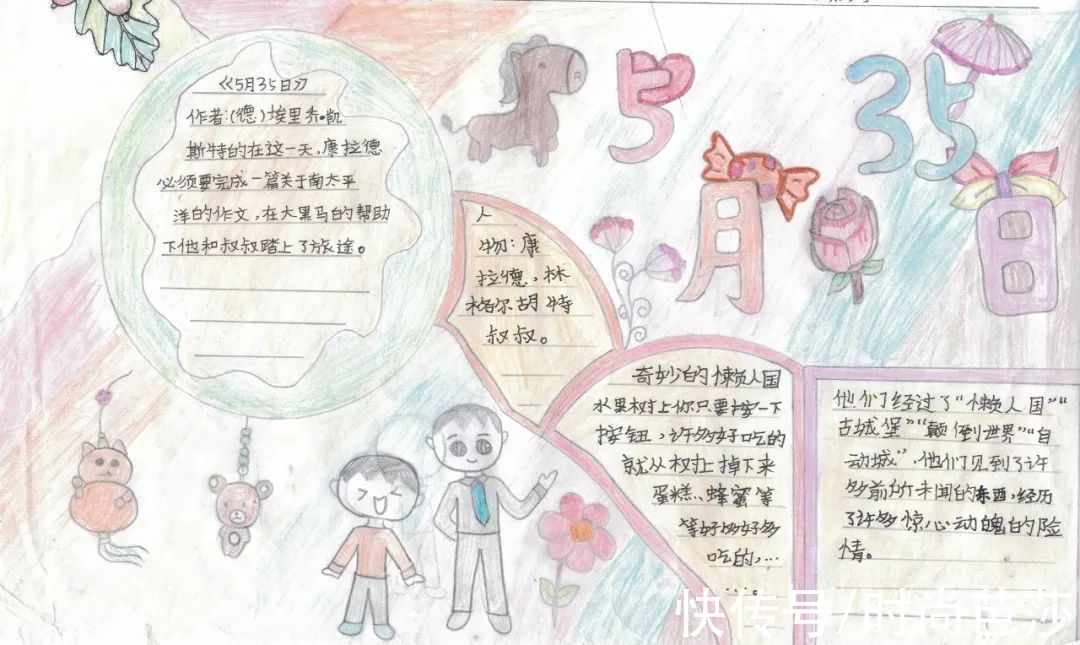 《5月35日》
作者:(德)埃里希•凯
斯特的在这一天,康拉德
必须要完成一篇关于南太平
洋的作文,在大黑马的帮助
下他和叔叔踏上了旅途。
5月35日
人
物:康
拉德,林
格尔胡特
叔叔。
奇妙的懒人国
水果树上你只要按一下
按钮,许多好吃的
就从树上掉下来
蛋糕、蜂蜜等
等好多好多
吃的,…
…。
他们经过了“懒人国”“
古城堡”“颠倒世界”“自
动城”,他们见到了许
多前所未闻的东西,经历
了许多惊心动魄的险
情。
快传号/时尚芭莎